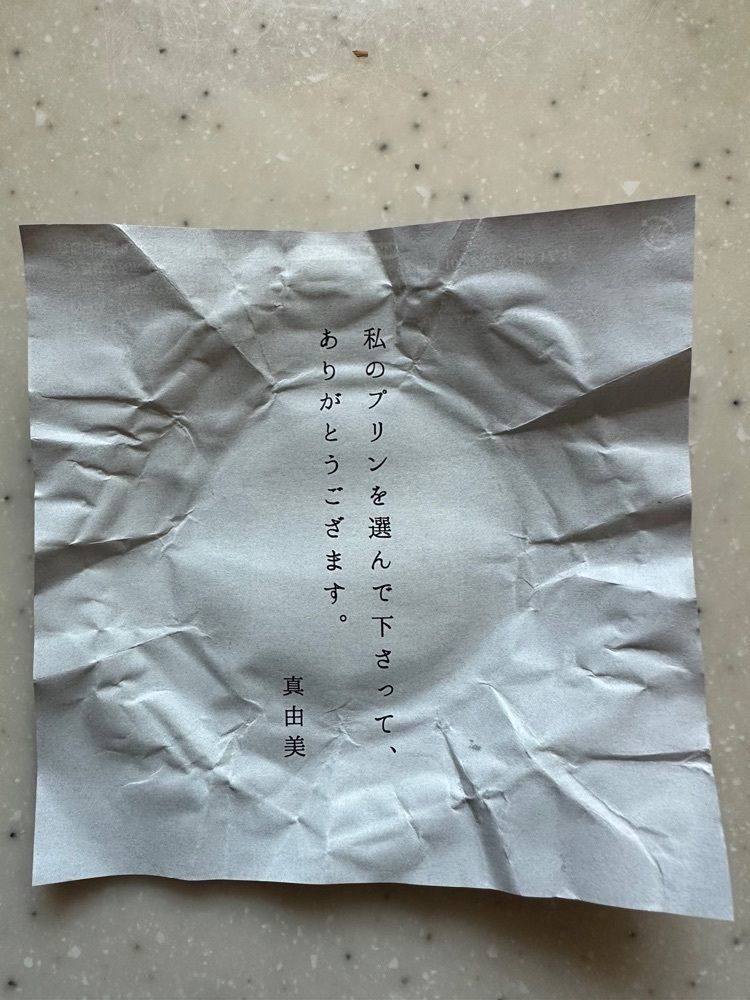 私のプリンを選んで下さって、
ありがとうござます。
真由美